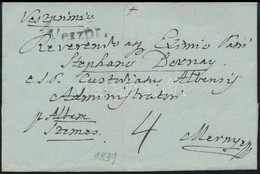 Veszprimio
Veszpr.
Reverendo ay Eximio Pati
Stephano Dornay
e. S. P. Custodiatus Albensis
Administratori
p. Albam
Szemes
4
Mernye
1839